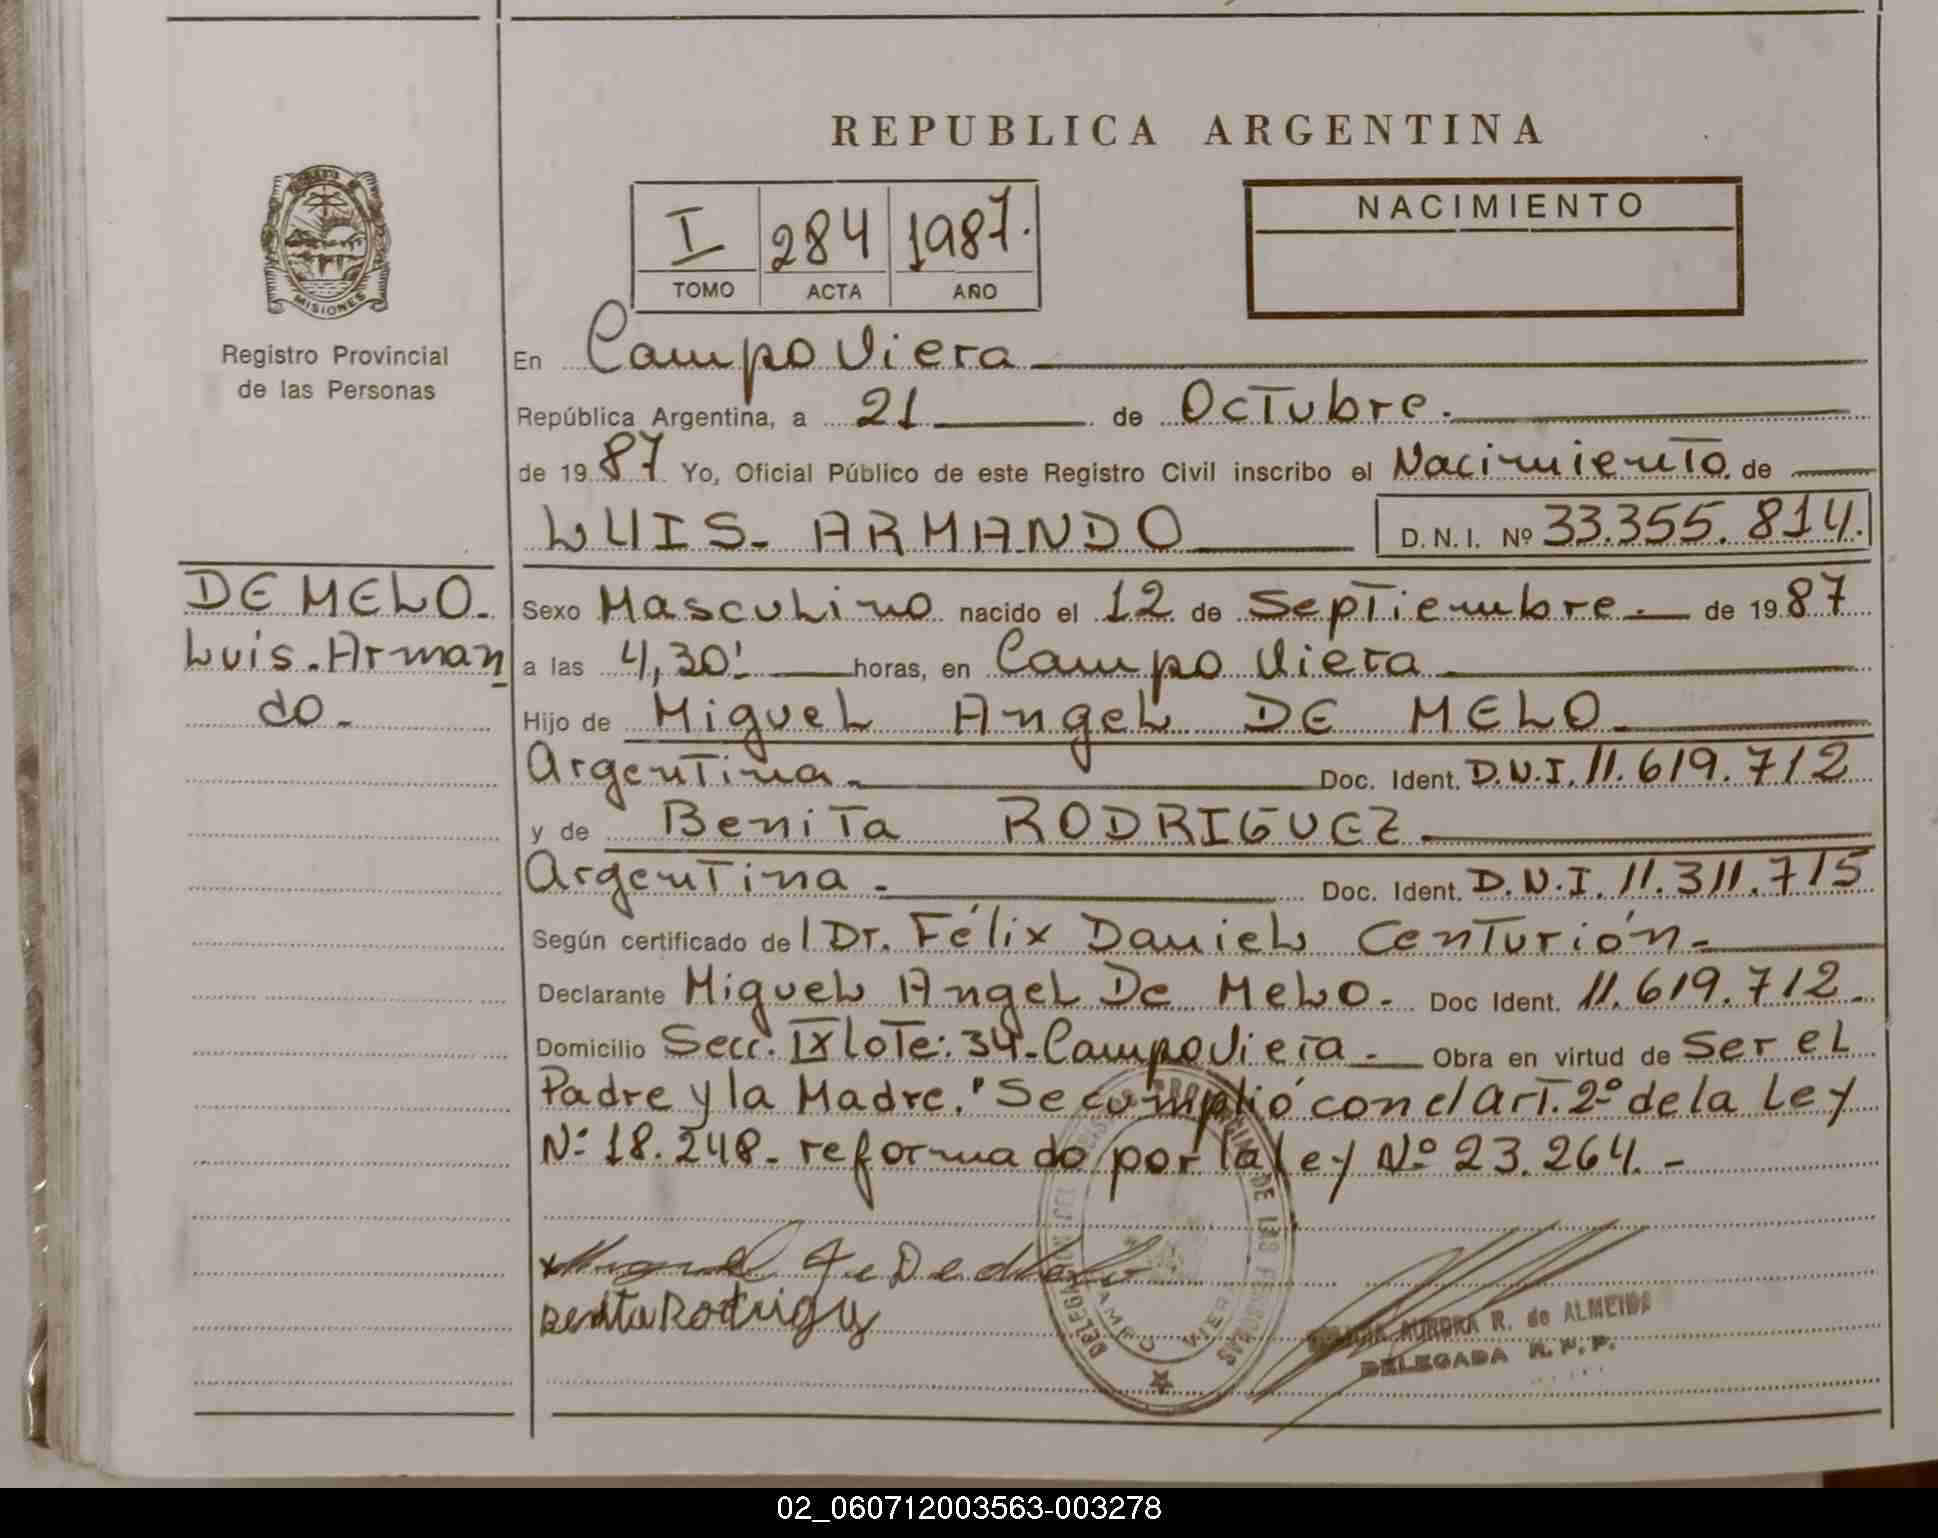 REPUBLICA ARGENTINA
I 284 1987.
TOMO ACTA AÑO
NACIMIENTO
MISIONES
Registro Provincial
de las Personas
En Campo Viera
República Argentina, a 21 de Octubre.
de 1987 Yo, Oficial Público de este Registro Civil inscribo el Nacimiento de
LUIS- ARMANDO D.N.I. Nº 33.355.814.
DE MELO-
Luis-Arman
do-
Sexo Masculino nacido el 12 de Septiembre.- de 1987
a las 4,30' horas, en Campo Viera
Hijo de Miguel Angel DE MELO-
Argentina- Doc. Ident. D.N.I. 11.619.712
y de Benita RODRIGUEZ-
Argentina- Doc. Ident. D.N.I. 11.311.715
Según certificado del Dr. Félix Daniel Centurión-
Declarante Miguel Angel De Melo- Doc Ident. 11.619.712-
Domicilio Secc. IX lote: 34-Campo Viera- Obra en virtud de Ser el
Padre y la Madre. "Se cumplió con el art. 2º de la Ley
Nº 18.248- reformado por la ley Nº 23.264.-
Miguel A. De Melo
Benita Rodriguez
AURORA R. de ALMEIDA
DELEGADA R. P. P.
DELEGACION DEL REGISTRO PROVINCIAL DE LAS PERSONAS
CAMPO VIERA
02_060712003563-003278